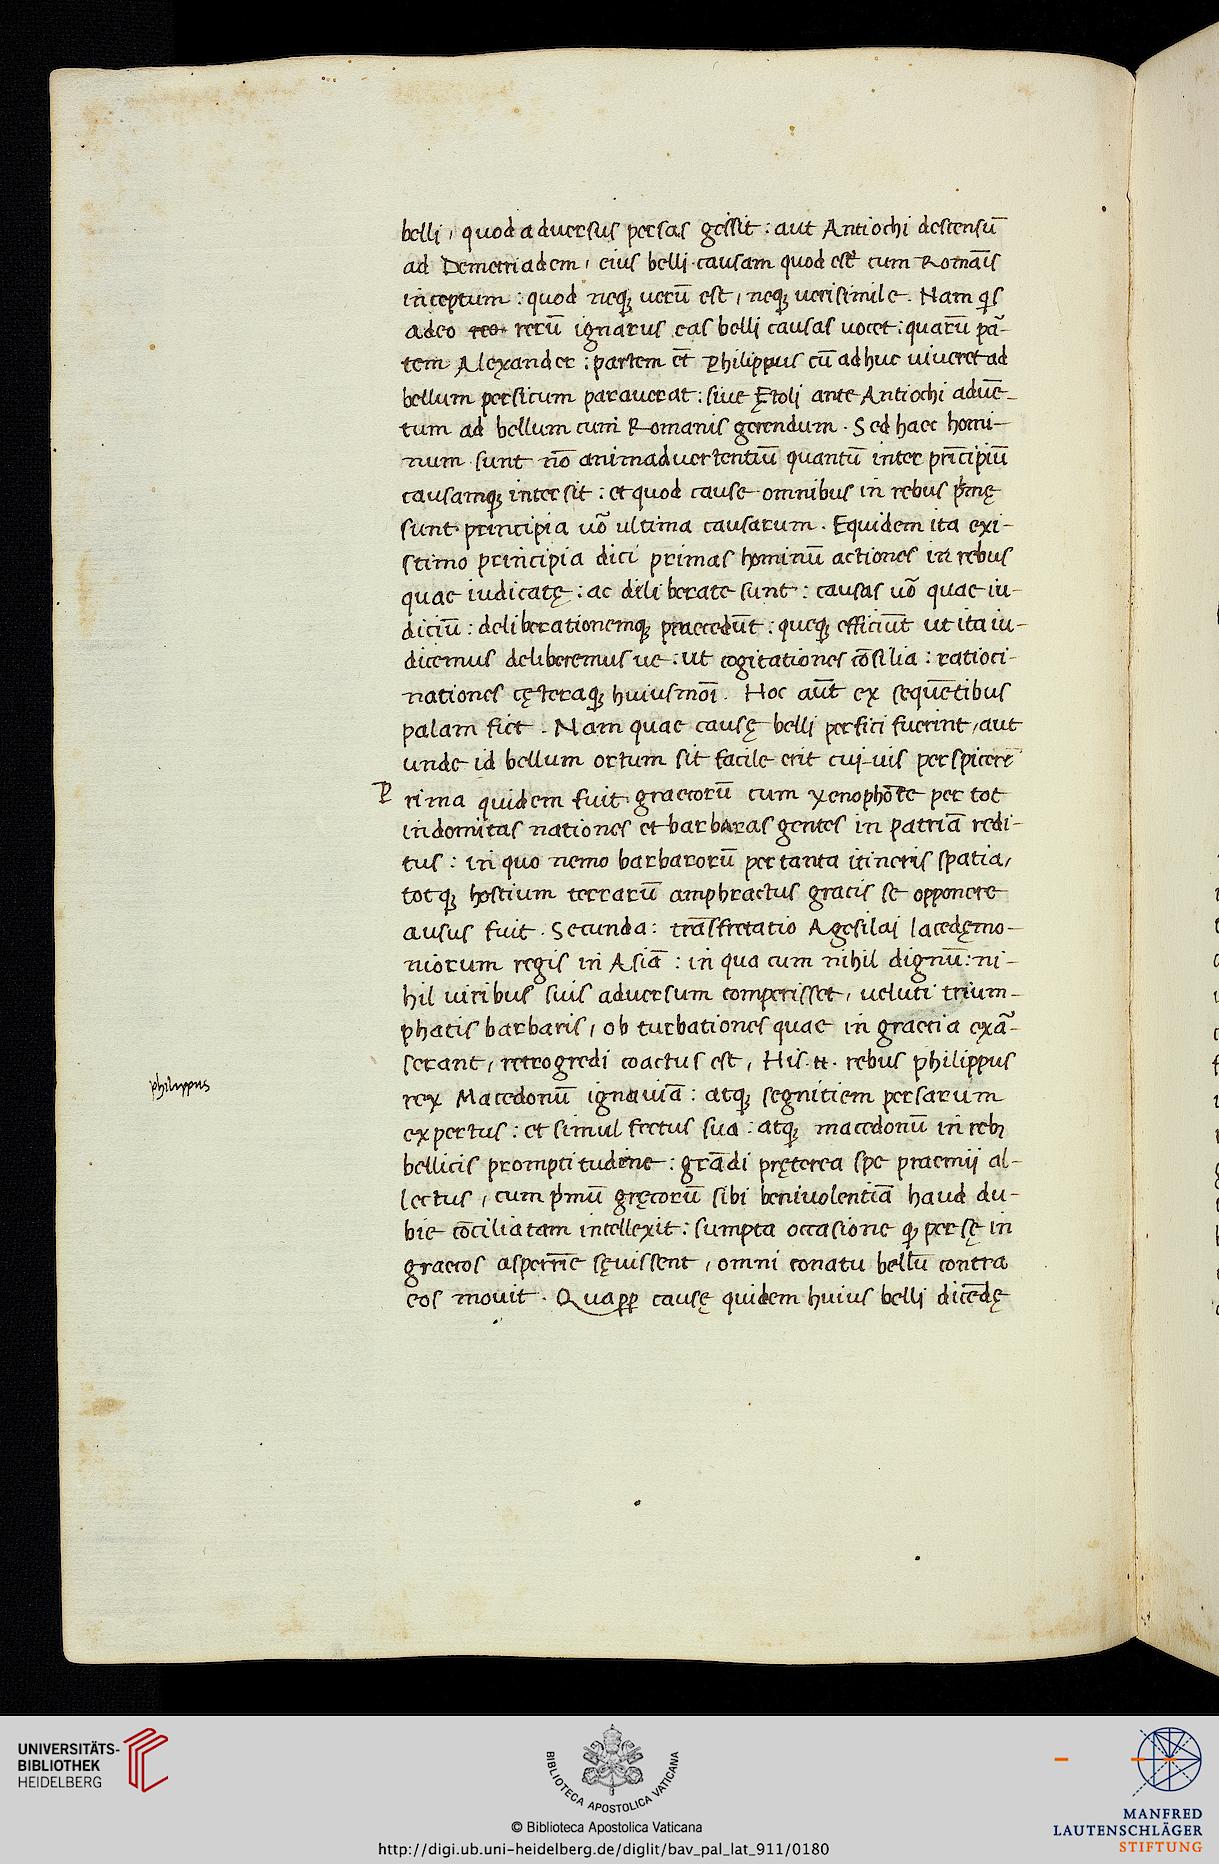 belli, quod aduersus persas gessit: aut Antiochi descensū
ad Demetriadem, eius belli causam quod est cum Romāis
inceptum: quod neqꝫ uerū est, neqꝫ uerisimile. Nam qͥs
adeo reo rerū ignarus eas belli causas uocet: quarū pā-
tem Alexander: partem et̄ Philippus cū adhuc uiueret ad
bellum persicum parauerat: siue Ętoli ante Antiochi aduē-
tum ad bellum cum Romanis gerendum. Sed haec homi-
num sunt nō animaduertentiū quantū inter prīcipiū
causamqꝫ intersit: et quod cause omnibus in rebus pͥmę
sunt principia uō ultima causarum. Equidem ita exi-
stimo principia dici primas hominū actiones in rebus
quae iudicatę: ac deliberate sunt: causas uō quae iu-
diciū: deliberationemqꝫ praecedūt: queqꝫ efficiūt ut ita iu-
dicemus deliberemus ue: ut cogitationes cōsilia: ratioci-
nationes cęteraqꝫ huiusmōi. Hoc aūt ex sequētibus
palam fiet. Nam quae causę belli persici fuerint, aut
unde id bellum ortum sit facile erit cui-uis perspicere
Prima quidem fuit graecorū cum xenophōte per tot
indomitas nationes et barbaras gentes in patriā redi-
tus: in quo nemo barbarorū per tanta itineris spatia,
totqꝫ hostium terrarū amphractus gracis se opponere
ausus fuit. Secunda: trāsfretatio Agesilai lacedęmo-
niorum regis in Asiā: in qua cum nihil dignū: ni-
hil uiribus suis aduersum comperisset, ueluti trium-
phatis barbaris, ob turbationes quae in graecia exā-
serant, retrogredi coactus est, His .tt. rebus philippus
philippus
rex Macedonū ignauiā: atqꝫ segnitiem persarum
expertus: et simul fretus sua: atqꝫ macedonū in rebꝫ
bellicis promptitudine: grādi pręterea spe praemii al-
lectus, cum pͥmū gręcorū sibi beniuolentiā haud du-
bie cōciliatam intellexit: sumpta occasione qꝫ persę in
graecos asperrīe sęuissent, omni conatu bellū contra
eos mouit. Quaꝓp causę quidem huius belli dicēdę
UNIVERSITÄTS-
BIBLIOTHEK
HEIDELBERG
BIBLIOTECA APOSTOLICA VATICANA
© Biblioteca Apostolica Vaticana
http://digi.ub.uni-heidelberg.de/diglit/bav_pal_lat_911/0180
MANFRED
LAUTENSCHLÄGER
STIFTUNG